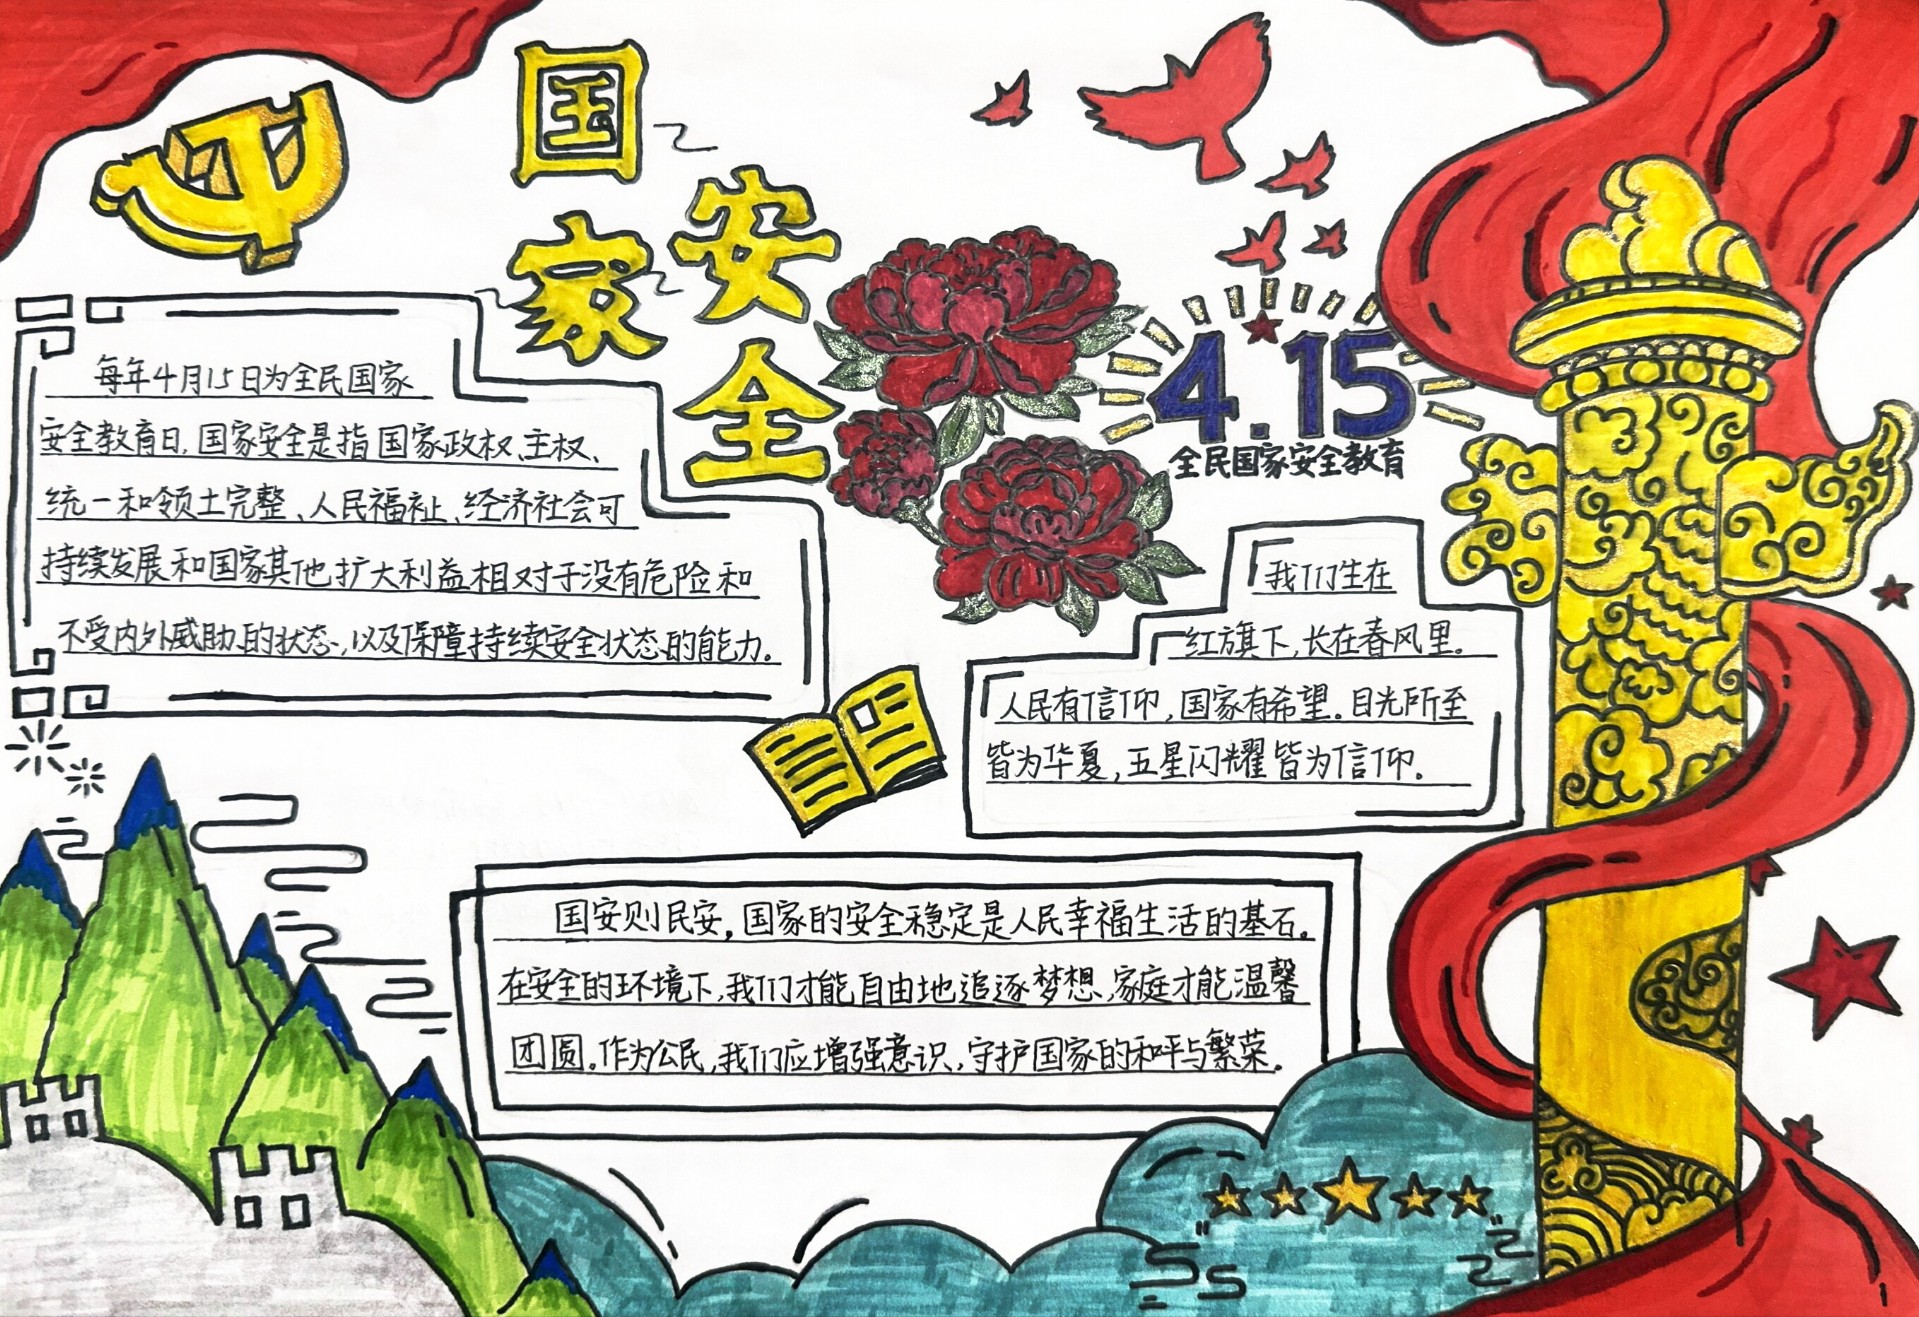 国家
安全
4.15
全民国家安全教育
每年4月15日为全民国家
安全教育日,国家安全是指国家政权、主权、
统一和领土完整、人民福祉、经济社会可
持续发展和国家其他扩大利益相对于没有危险和
不受内外威胁的状态,以及保障持续安全状态的能力。
我们生在
红旗下,长在春风里。
人民有信仰,国家有希望。目光所至
皆为华夏,五星闪耀皆为信仰。
国安则民安,国家的安全稳定是人民幸福生活的基石。
在安全的环境下,我们才能自由地追逐梦想,家庭才能温馨
团圆。作为公民,我们应增强意识,守护国家的和平与繁荣。